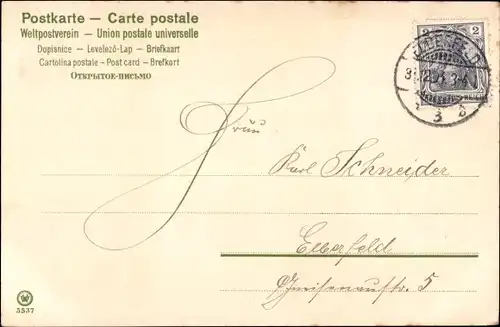 Postkarte – Carte postale
Weltpostverein – Union postale universelle
Dopisnice – Levelező-Lap – Briefkaart
Cartolina postale – Post card – Brefkort
ОТКРЫТОЕ-ПИСЬМО
2 2
ELBERFELD
3
Frau
Karl Schneider
Elberfeld
Gneisenaustr. 5
5537